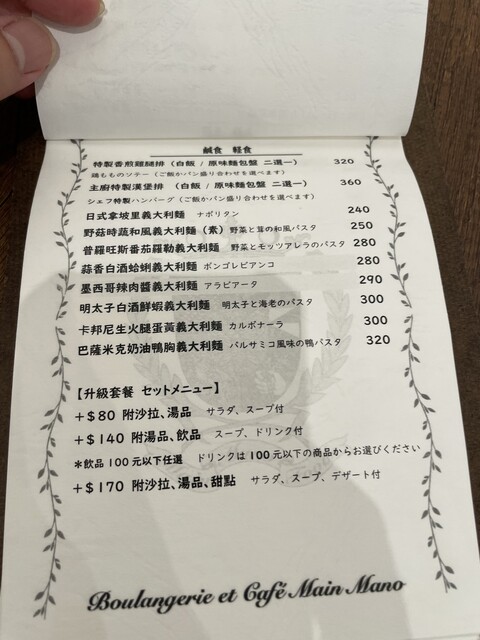 鹹食 輕食
特製香煎雞腿排 (白飯 / 原味麵包盤 二選一) 320
鶏もものソテー (ご飯かパン盛り合わせを選べます)
主廚特製漢堡排 (白飯 / 原味麵包盤 二選一) 360
シェフ特製ハンバーグ (ご飯かパン盛り合わせを選べます)
日式拿坡里義大利麵 ナポリタン 240
野菇時蔬和風義大利麵 (素) 野菜と茸の和風パスタ 250
普羅旺斯番茄羅勒義大利麵 野菜とモッツアレラのパスタ 280
蒜香白酒蛤蜊義大利麵 ボンゴレビアンコ 280
墨西哥辣肉醬義大利麵 アラビアータ 290
明太子白酒鮮蝦義大利麵 明太子と海老のパスタ 300
卡邦尼生火腿蛋黃義大利麵 カルボナーラ 300
巴薩米克奶油鴨胸義大利麵 バルサミコ風味の鴨パスタ 320
【升級套餐 セットメニュー】
+$80 附沙拉、湯品 サラダ、スープ付
+$140 附湯品、飲品 スープ、ドリンク付
*飲品100元以下任選 ドリンクは100元以下の商品からお選びください
+$170 附沙拉、湯品、甜點 サラダ、スープ、デザート付
Boulangerie et Café Main Mano